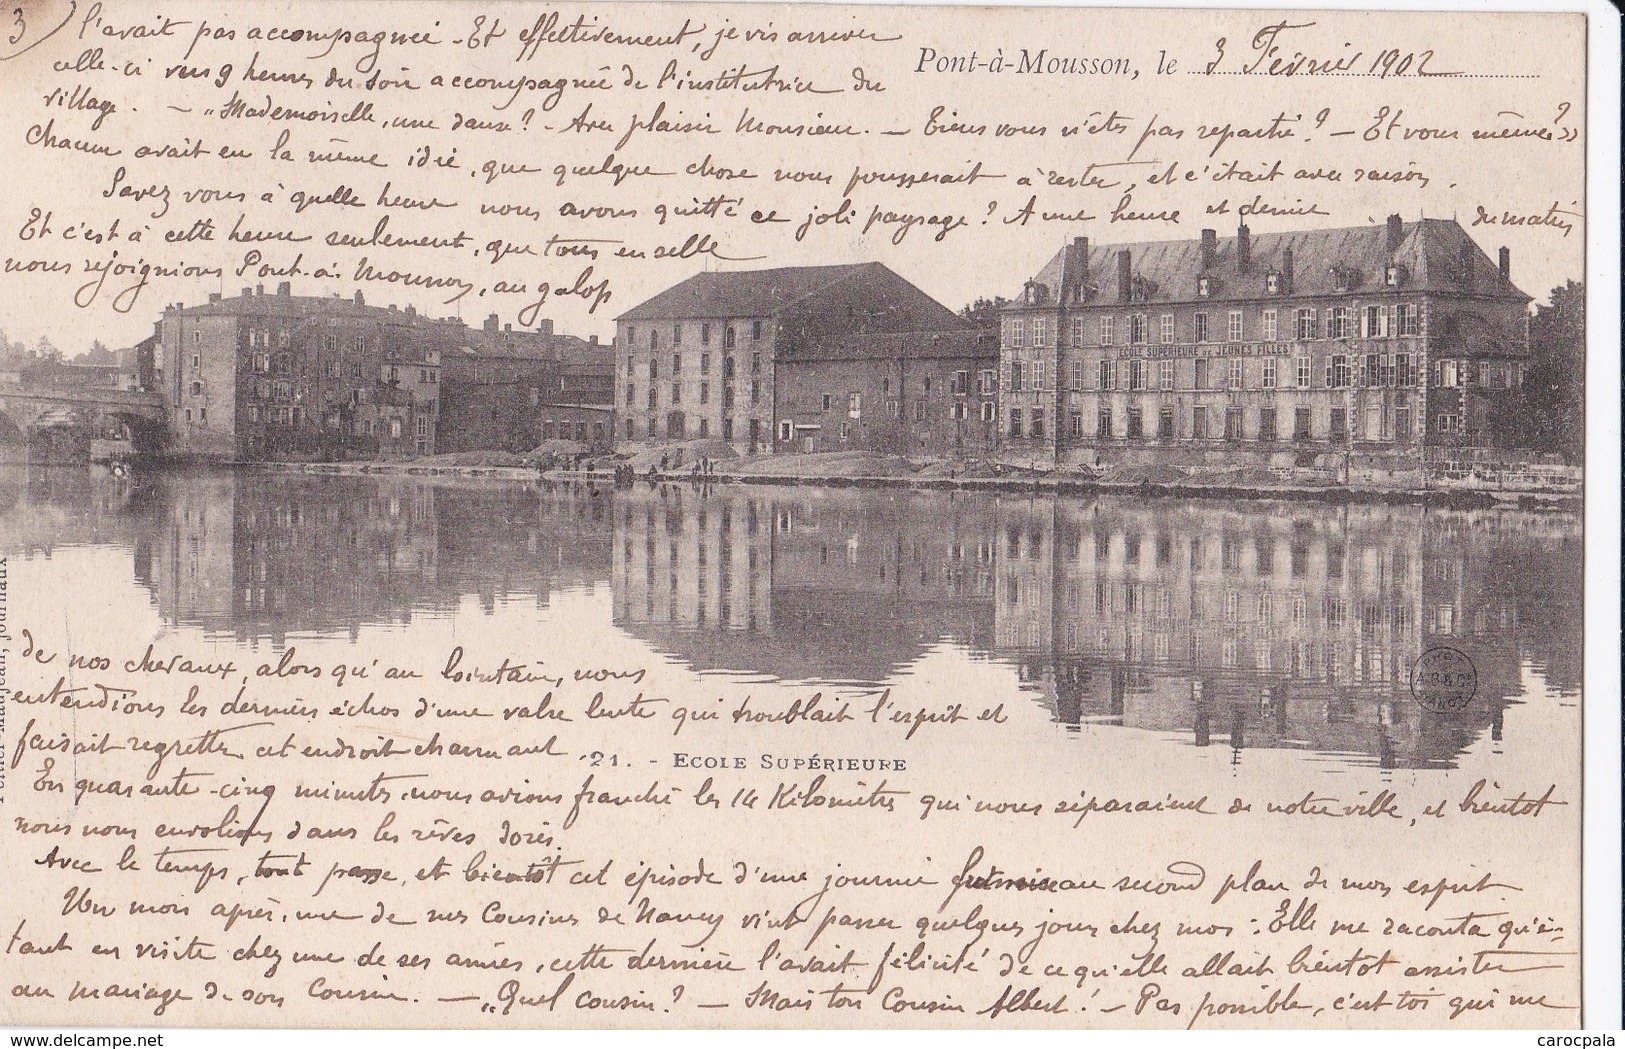 3) l'avait pas accompagnée - Et effectivement, je vis arriver
Pont-à-Mousson, le 3 Février 1902
celle-ci vers 9 heures du soir accompagnée de l'institutrice du
village. — "Mademoiselle, une danse? - Avec plaisir Monsieur. — Tiens vous n'êtes pas reparti? — Et vous même?"
Chacun avait eu la même idée, que quelque chose nous pousserait à rester, et c'était avec raison.
Savez vous à quelle heure nous avons quitté ce joli paysage? A une heure et demie du matin
Et c'est à cette heure seulement, que tous en selle
nous rejoignions Pont-à-Mousson, au galop
ECOLE SUPERIEURE DE JEUNES FILLES
de nos chevaux, alors qu'au lointain, nous
entendions les derniers échos d'une valse lente qui troublait l'esprit et
faisait regretter cet endroit charmant.
21. - ECOLE SUPÉRIEURE
PHOT A.B & Cie NANCY
journaux
En quarante-cinq minutes nous avions franchi les 14 Kilomètres qui nous séparaient de notre ville, et bientôt
nous nous envolions dans les rêves dorés.
Avec le temps, tout passe, et bientôt cet épisode d'une journée fut mise au second plan de mon esprit
Un mois après, une de mes Cousines de Nancy vint passer quelques jours chez moi : Elle me raconta qu'é-
tant en visite chez une de ses amies, cette dernière l'avait félicité de ce qu'elle allait bientôt assister
au mariage de son Cousin. — "Quel cousin? — Mais ton Cousin Albert! — Pas possible, c'est toi qui me
carocpala